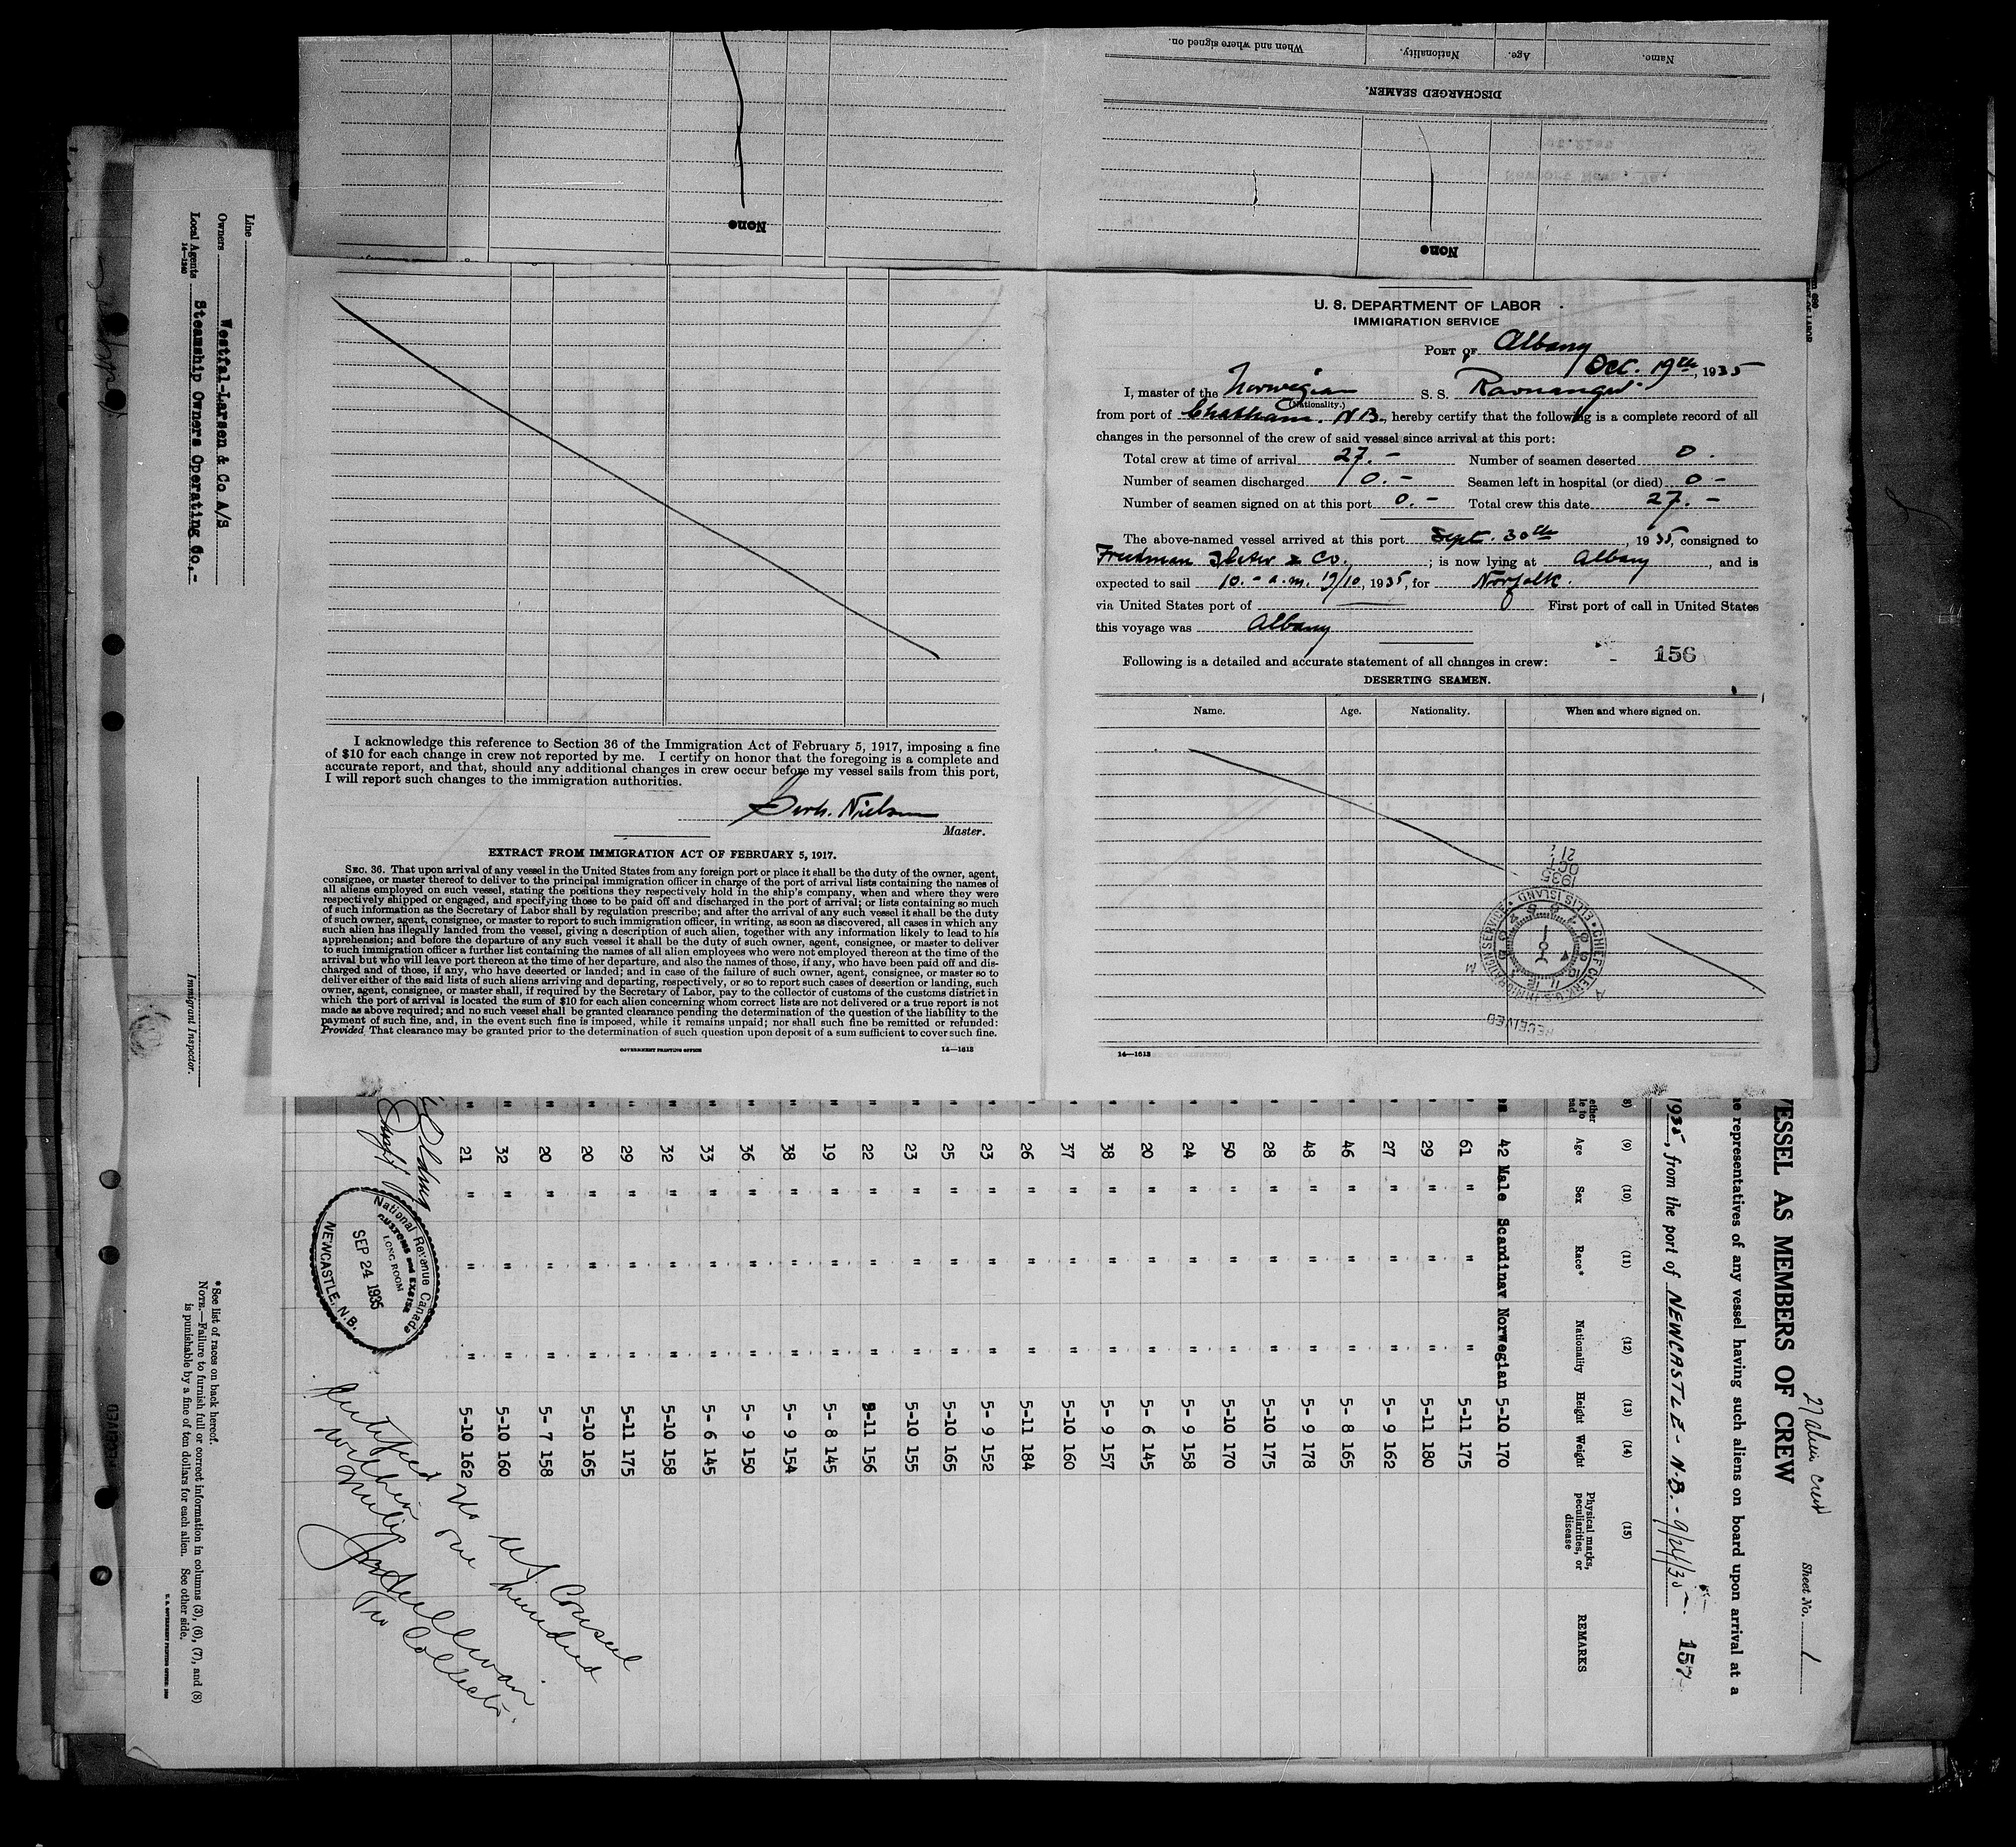 When and where signed on.
Nationality.
Age.
Name.
DISCHARGED SEAMEN.
None
None
U. S. DEPARTMENT OF LABOR
IMMIGRATION SERVICE
PORT OF Albany
Oct. 19th, 1935
I, master of the Norwegian S. S.
(Nationality.)
from port of Chatham. N.B., hereby certify that the following is a complete record of all
changes in the personnel of the crew of said vessel since arrival at this port:
Total crew at time of arrival 27.- Number of seamen deserted 0.
Number of seamen discharged 0.- Seamen left in hospital (or died) 0-
Number of seamen signed on at this port 0.- Total crew this date 27.-
The above-named vessel arrived at this port Sept. 30th, 1935, consigned to
& Co.; is now lying at Albany, and is
expected to sail 10.- a.m. 19/10, 1935, for Norfolk.
via United States port of First port of call in United States
this voyage was Albany
Following is a detailed and accurate statement of all changes in crew: - 156
DESERTING SEAMEN.
Name. Age. Nationality. When and where signed on.
1935
OCT
21
RECEIVED
CHIEF CLERK U.S. IMMIGRATION SERVICE • ELLIS ISLAND
14—1613
I acknowledge this reference to Section 36 of the Immigration Act of February 5, 1917, imposing a fine
of $10 for each change in crew not reported by me. I certify on honor that the foregoing is a complete and
accurate report, and that, should any additional changes in crew occur before my vessel sails from this port,
I will report such changes to the immigration authorities.
Gerh. Nielsen
Master.
EXTRACT FROM IMMIGRATION ACT OF FEBRUARY 5, 1917.
SEC. 36. That upon arrival of any vessel in the United States from any foreign port or place it shall be the duty of the owner, agent,
consignee, or master thereof to deliver to the principal immigration officer in charge of the port of arrival lists containing the names of
all aliens employed on such vessel, stating the positions they respectively hold in the ship's company, when and where they were
respectively shipped or engaged, and specifying those to be paid off and discharged in the port of arrival; or lists containing so much
of such information as the Secretary of Labor shall by regulation prescribe; and after the arrival of any such vessel it shall be the duty
of such owner, agent, consignee, or master to report to such immigration officer, in writing, as soon as discovered, all cases in which any
such alien has illegally landed from the vessel, giving a description of such alien, together with any information likely to lead to his
apprehension; and before the departure of any such vessel it shall be the duty of such owner, agent, consignee, or master to deliver
to such immigration officer a further list containing the names of all alien employees who were not employed thereon at the time of the
arrival but who will leave port thereon at the time of her departure, and also the names of those, if any, who have been paid off and dis-
charged and of those, if any, who have deserted or landed; and in case of the failure of such owner, agent, consignee, or master so to
deliver either of the said lists of such aliens arriving and departing, respectively, or so to report such cases of desertion or landing, such
owner, agent, consignee, or master shall, if required by the Secretary of Labor, pay to the collector of customs of the customs district in
which the port of arrival is located the sum of $10 for each alien concerning whom correct lists are not delivered or a true report is not
made as above required; and no such vessel shall be granted clearance pending the determination of the question of the liability to the
payment of such fine, and, in the event such fine is imposed, while it remains unpaid; nor shall such fine be remitted or refunded:
Provided That clearance may be granted prior to the determination of such question upon deposit of a sum sufficient to cover such fine.
GOVERNMENT PRINTING OFFICE 14—1613
27 alien crew
Sheet No. 1
VESSEL AS MEMBERS OF CREW
representatives of any vessel having such aliens on board upon arrival at a
1935, from the port of NEWCASTLE - N.B. - 9/24/35 157
(9) (10) (11) (12) (13) (14) (15)
Age Sex Race* Nationality Height Weight Physical marks, peculiarities, or disease REMARKS
42 Male Scandinav Norwegian 5-10 170
61 " " " 5-11 175
29 " " " 5-11 180
27 " " " 5- 9 162
46 " " " 5- 8 165
48 " " " 5- 9 178
28 " " " 5-10 175
50 " " " 5-10 170
24 " " " 5- 9 158
20 " " " 5- 6 145
38 " " " 5- 9 157
37 " " " 5-10 160
26 " " " 5-11 184
23 " " " 5- 9 152
25 " " " 5-10 165
23 " " " 5-10 155
22 " " " 5-11 156
19 " " " 5- 8 145
38 " " " 5- 9 154
36 " " " 5- 9 150
33 " " " 5- 6 145
32 " " " 5-10 158
29 " " " 5-11 175
20 " " " 5-10 165
20 " " " 5- 7 158
32 " " " 5-10 160
21 " " " 5-10 162
National Revenue Canada
CUSTOMS and EXCISE
LONG ROOM
SEP 24 1935
NEWCASTLE, N.B.
Certified no U.S. Consul
within one hundred
miles
Collector.
Line
Owners Westfal-Larsen & Co A/S
Local Agents Steamship Owners Operating Co,-
14—1240
Immigrant Inspector.
*See list of races on back hereof.
NOTE.—Failure to furnish full or correct information in columns (3), (6), (7), and (8)
is punishable by a fine of ten dollars for each alien. See other side.
U. S. GOVERNMENT PRINTING OFFICE